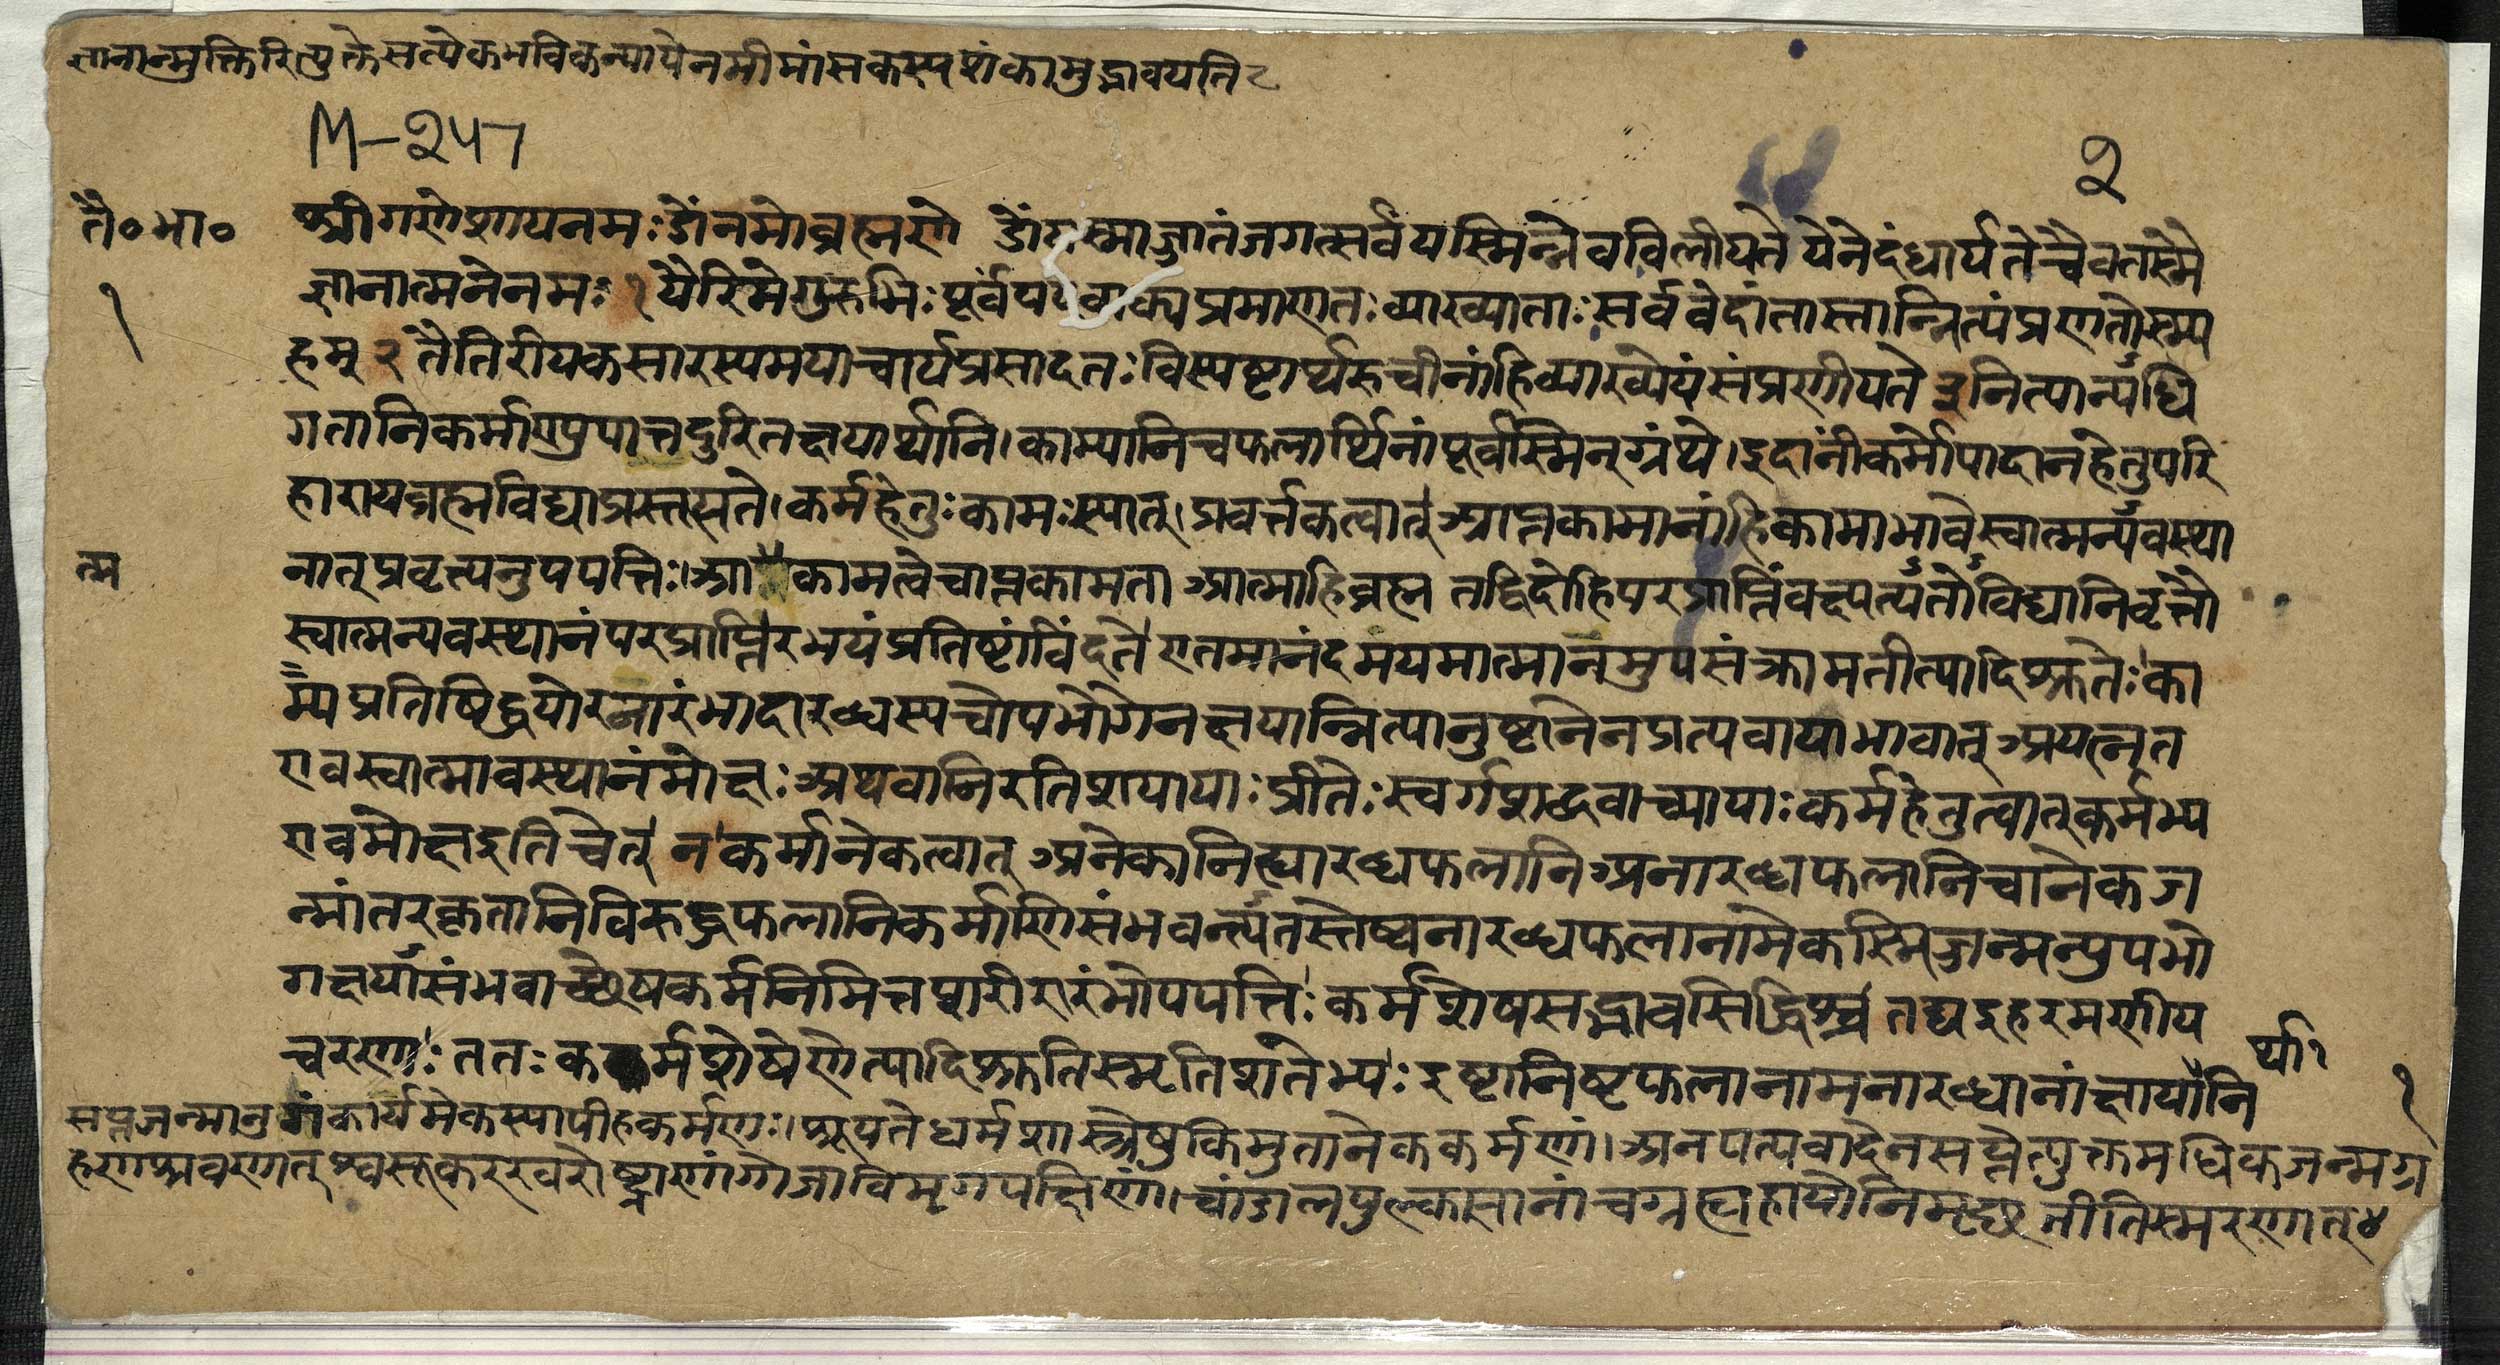 ज्ञानान्मुक्तिरित्युक्तेसत्येकभविकन्यायेनमीमांसकस्यशंकामुद्भावयति
M-२५७
२
तै०भा०
श्रीगणेशायनमः ॐनमोब्रह्मणे ॐयस्माज्जातंजगत्सर्वंयस्मिन्नेवविलीयते येनेदंधार्यतेचैवतस्मै
१
ज्ञानात्मनेनमः १ यैरिमेगुरुभिःपूर्वंपदवाक्यप्रमाणतः व्याख्याताःसर्ववेदांतास्तान्नित्यंप्रणतोस्म्य
हम् २ तैतिरीयकसारस्यमयाचार्यप्रसादतः विस्पष्टार्थरुचीनांहिव्याख्येयंसंप्रणीयते ३ नित्यान्यधि
गतानिकर्माण्युपात्तदुरितक्षयार्थानि। काम्यानिचफलार्थिनांपूर्वस्मिन्ग्रंथे। इदानींकर्मोपादानहेतुपरि
हारायब्रह्मविद्याप्रस्तूयते। कर्महेतुःकामःस्यात्। प्रवर्त्तकत्वात् आप्तकामानांहिकामाभावेस्वात्मन्यवस्था
त्म
नात्प्रवृत्त्यनुपपत्तिः। आ कामत्वेचाप्तकामता आत्माहिब्रह्म तद्विदोहिपरप्राप्तिंवक्ष्यत्यतोविद्यानिवृत्तौ
स्वात्मन्यवस्थानंपरप्राप्तिरभयंप्रतिष्टांविंदते एतमानंदमयमात्मानमुपसंक्रामतीत्यादिश्रुतेः का
म्यप्रतिषिद्धयोरनारंभादारब्धस्यचोपभोगेनक्षयान्नित्यानुष्टानेनप्रत्यवायाभावात् अयत्नत
एवस्वात्मावस्थानंमोक्षः अथवानिरतिशयायाः प्रीतेः स्वर्गशब्दवाच्यायाः कर्महेतुत्वात्कर्मभ्य
एवमोक्षइतिचेत् न कर्मानेकत्वात् अनेकानिह्यारब्धफलानि अनारब्धफलानिचानेकज
न्मांतरकृतानिविरुद्धफलानिकर्माणिसंभवन्त्यतस्तेष्वनारब्धफलानामेकस्मिञ्जन्मन्युपभो
गक्षयासंभवाच्छेषकर्मनिमित्तशरीरारंभोपपत्तिः कर्मशेषसद्भावसिद्धिश्च तद्यइहरमणीय
चरणाः ततः कर्मशेषेणेत्यादिश्रुतिस्मृतिशतेभ्यः इष्टानिष्टफलानामनारब्धानांक्षयानि
र्था१
१
सप्तजन्मानुगंकार्यमेकस्यापीहकर्मणः। श्रूयतेधर्मशास्त्रेषुकिमुतानेककर्मणां। अनपत्यवादेनसप्तेत्युक्तमधिकजन्मग्र
हणश्रवणात् श्वसूकरखरोष्ट्राणांगोजाविमृगपक्षिणां। चांडालपुल्कसानांचब्रह्महायोनिमृच्छतीतिस्मरणात्४